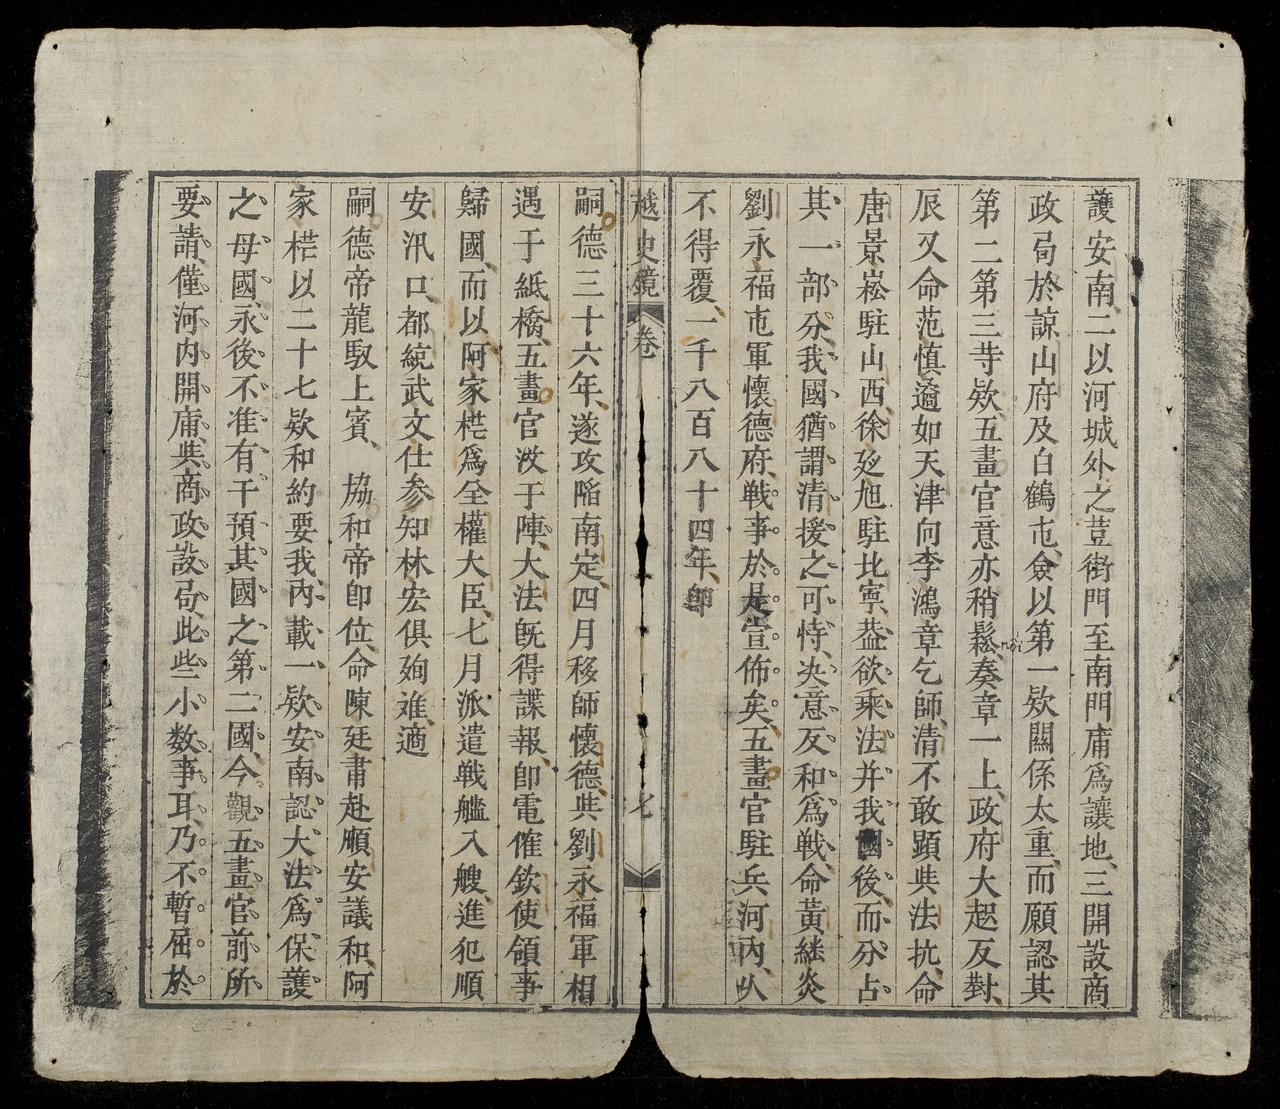 護安南、二以河城外之荳衛門至南門庸爲讓地、三開設商
政局於諒山府及白鶴屯、僉以第一欵關係太重、而願認其
第二第三䓁欵、五畫官意亦稍鬆、奏章一上、政府大起反對、
辰又命范慎遹如天津、向李鴻章乞師、清不敢顕㘯法抗、命
唐景崧駐山西、徐延旭駐比寕、葢欲乘法并我國後而分占
其一部分、我國猶謂清援之可恃、决意反和爲戦、命黃継炎
劉永福屯軍懷德府、戦事於是宣佈矣、五畫官駐兵河内、以
不得覆、一千八百八十四年、即
越史鏡 卷 七
嗣德三十六年、遂攻陷南定、四月移師懷德、㘯劉永福軍相
遇于紙橋、五畫官沒于陣、大法既得諜報、即電催欽使領事
歸國、而以阿家㭲爲全權大臣、七月派遣戦艦入艘、進犯順
安汛口、都統武文仕参知林宏俱殉難、適
嗣德帝龍馭上賓、 協和帝即位、命陳廷肅赴順安議和、阿
家㭲以二十七欵和約要我、內載一欵、安南認大法爲保護
之母國、永後不准有干預其國之第二國、今觀五畫官前所
要請、僅河内開庸㘯商政設局、此些小数事耳、乃不暫屈於